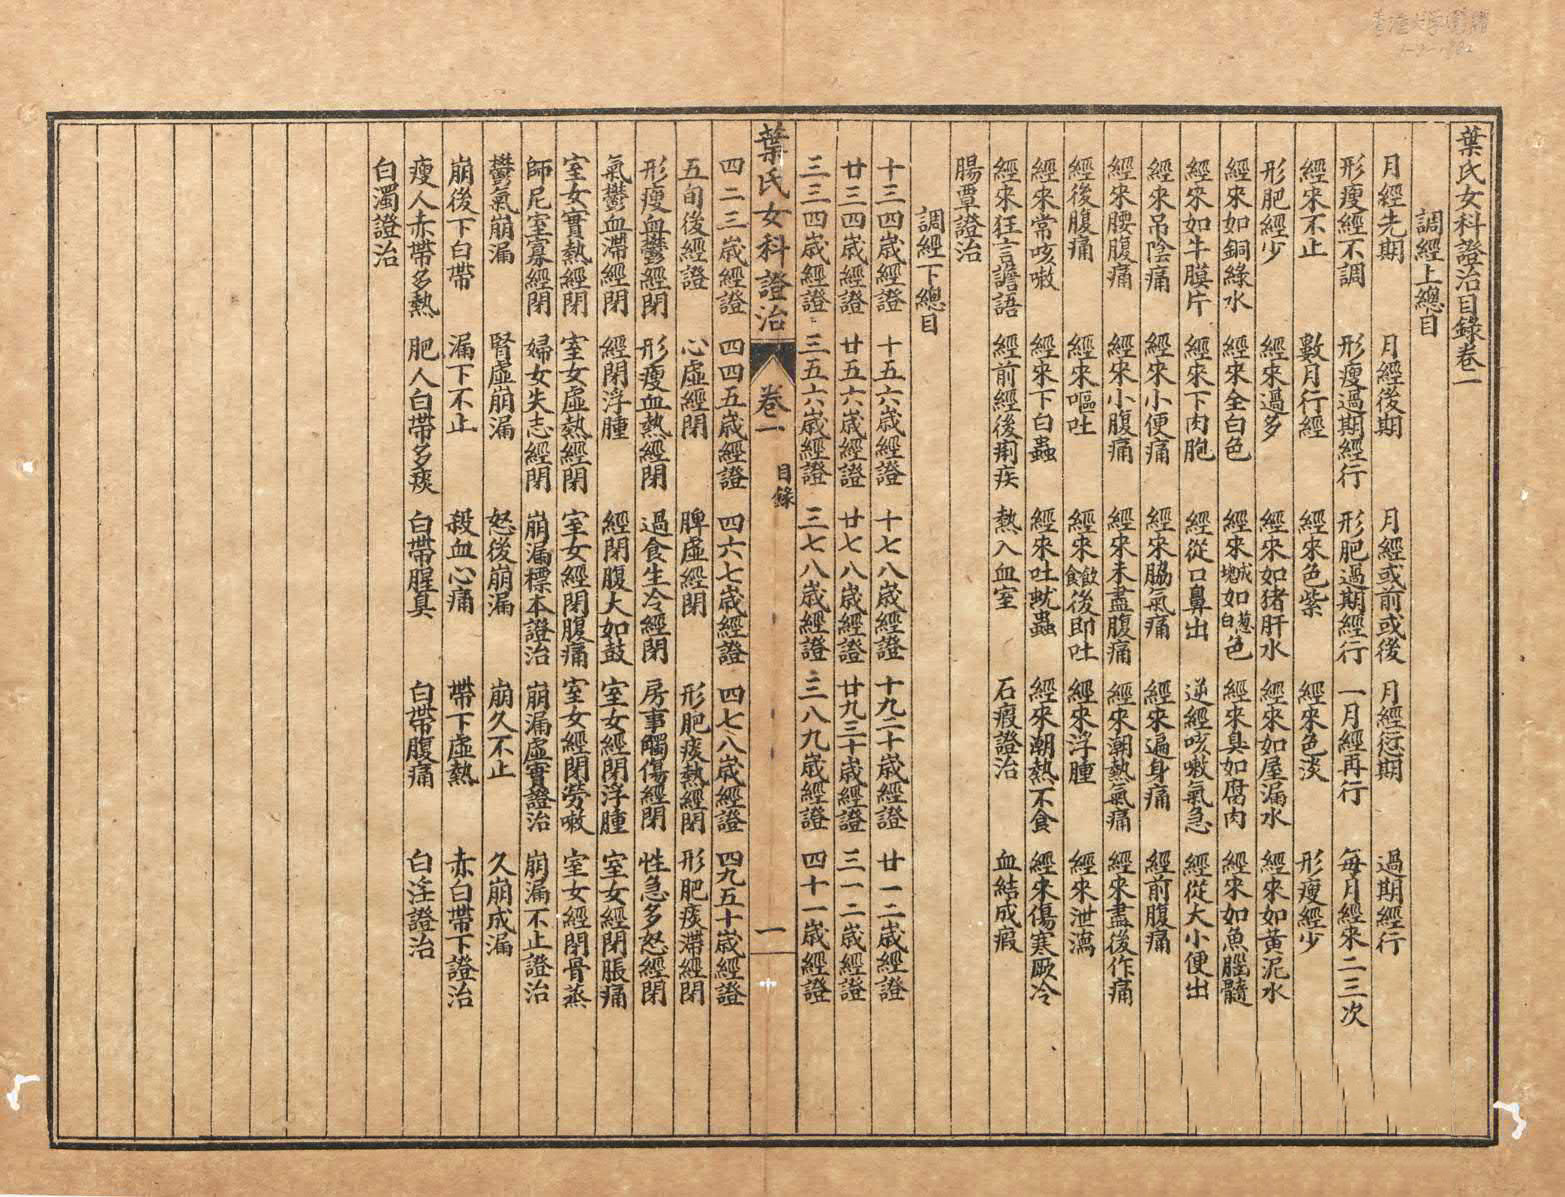 葉氏女科證治目錄卷一
調經上總目
月經先期 月經後期 月經或前或後 月經愆期 過期經行
形瘦經不調 形瘦過期經行 形肥過期經行 一月經再行 每月經來二三次
經來不止 數月行經 經來色紫 經來色淡 形瘦經少
形肥經少 經來過多 經來如猪肝水 經來如屋漏水 經來如黃泥水
經來如銅綠水 經來全白色 經來成塊如葱白色 經來臭如腐肉 經來如魚腦髓
經來如牛膜片 經來下肉胞 經從口鼻出 逆經咳嗽氣急 經從大小便出
經來吊陰痛 經來小便痛 經來脇氣痛 經來遍身痛 經前腹痛
經來腰腹痛 經來小腹痛 經來未盡腹痛 經來潮熱氣痛 經來盡後作痛
經後腹痛 經來嘔吐 經來飲食後即吐 經來浮腫 經來泄瀉
經來常咳嗽 經來下白蟲 經來吐蚘蟲 經來潮熱不食 經來傷寒厥冷
經來狂言譫語 經前經後痢疾 熱入血室 石瘕證治 血結成瘕
腸覃證治
調經下總目
十三四歲經證 十五六歲經證 十七八歲經證 十九二十歲經證 廿一二歲經證
廿三四歲經證 廿五六歲經證 廿七八歲經證 廿九三十歲經證 三一二歲經證
三三四歲經證 三五六歲經證 三七八歲經證 三八九歲經證 四十一歲經證
葉氏女科證治 卷一 目錄 一
四二三歲經證 四四五歲經證 四六七歲經證 四七八歲經證 四九五十歲經證
五旬後經證 心虛經閉 脾虛經閉 形肥痰熱經閉 形肥痰滯經閉
形瘦血鬱經閉 形瘦血熱經閉 過食生冷經閉 房事觸傷經閉 性急多怒經閉
氣鬱血滯經閉 經閉浮腫 經閉腹大如鼓 室女經閉浮腫 室女經閉脹痛
室女實熱經閉 室女虛熱經閉 室女經閉腹痛 室女經閉勞嗽 室女經閉骨蒸
師尼室寡經閉 婦女失志經閉 崩漏標本證治 崩漏虛實證治 崩漏不止證治
鬱氣崩漏 腎虛崩漏 怒後崩漏 崩久不止 久崩成漏
崩後下白帶 漏下不止 殺血心痛 帶下虛熱 赤白帶下證治
瘦人赤帶多熱 肥人白帶多痰 白帶腥臭 白帶腹痛 白淫證治
白濁證治